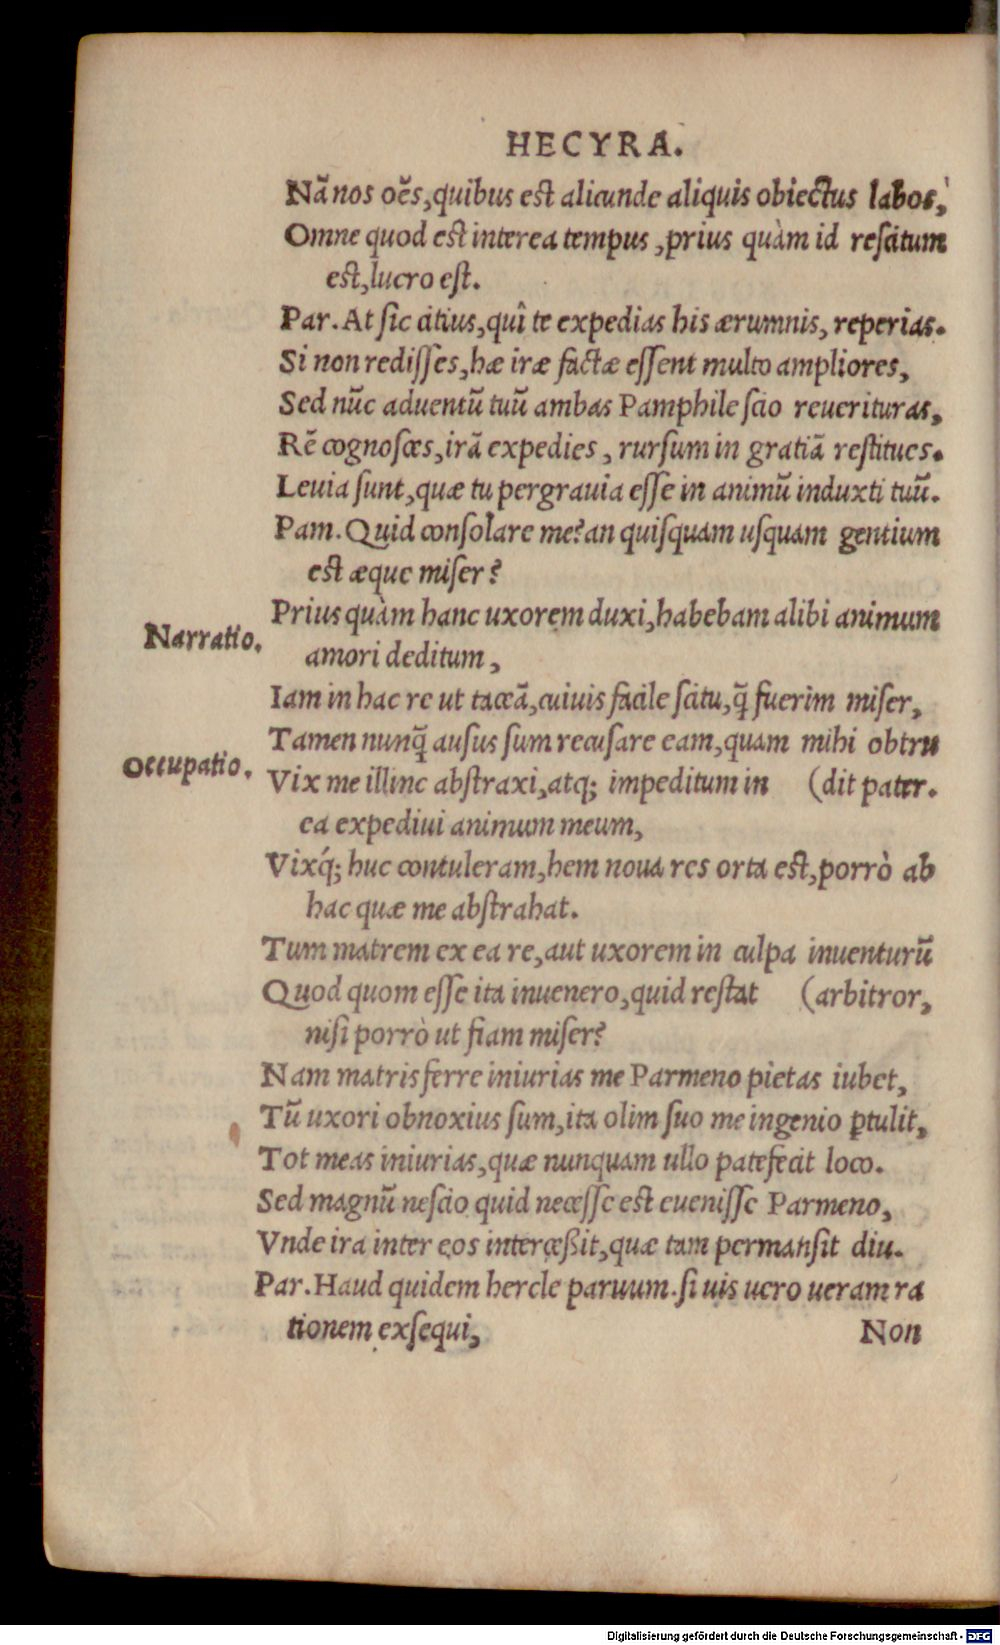 HECYRA.
Nã nos oẽs, quibus est alicunde aliquis obiectus labos,
Omne quod est interea tempus, prius quàm id reſcitum
est, lucro eſt.
Par. At ſic citius, quî te expedias his ærumnis, reperias.
Si non rediſſes, hæ iræ factæ eſſent multo ampliores,
Sed nũc aduentũ tuũ ambas Pamphile ſcio reuerituras,
Rẽ cognoſces, irã expedies, rurſum in gratiã reſtitues.
Leuia ſunt, quæ tu pergrauia eſſe in animũ induxti tuũ.
Pam. Quid conſolare me? an quiſquam uſquam gentium
est æque miſer?
Prius quàm hanc uxorem duxi, habebam alibi animum
Narratio.
amori deditum,
Iam in hac re ut taceã, cuiuis facile ſcitu, q̃ fuerim miſer,
Tamen nunq̃ auſus ſum recuſare eam, quam mihi obtru
Occupatio.
Vix me illinc abſtraxi, atq; impeditum in (dit pater.
ea expediui animum meum,
Vixq́; huc contuleram, hem noua res orta est, porrò ab
hac quæ me abſtrahat.
Tum matrem ex ea re, aut uxorem in culpa inuenturũ
Quod quom eſſe ita inuenero, quid reſtat (arbitror,
niſi porrò ut fiam miſer?
Nam matris ferre iniurias me Parmeno pietas iubet,
Tũ uxori obnoxius ſum, ita olim ſuo me ingenio ꝑtulit,
Tot meas iniurias, quæ nunquam ullo patefecit loco.
Sed magnũ neſcio quid neceſſe est eueniſſe Parmeno,
Vnde ira inter eos interceßit, quæ tam permanſit diu.
Par. Haud quidem hercle paruum. ſi uis uero ueram ra
tionem exſequi,
Non
Digitalisierung gefördert durch die Deutsche Forschungsgemeinschaft - DFG